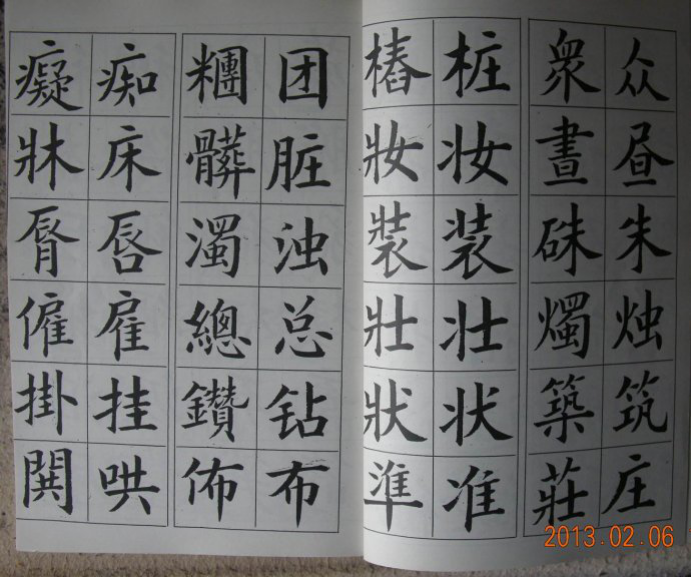 众昼朱烛筑庄
衆晝硃燭築莊
桩妆装壮状准
樁妝裝壯狀準
团脏浊总钻布
糰髒濁總鑽佈
痴床唇雇挂哄
癡牀脣僱掛鬨
2013.02.06